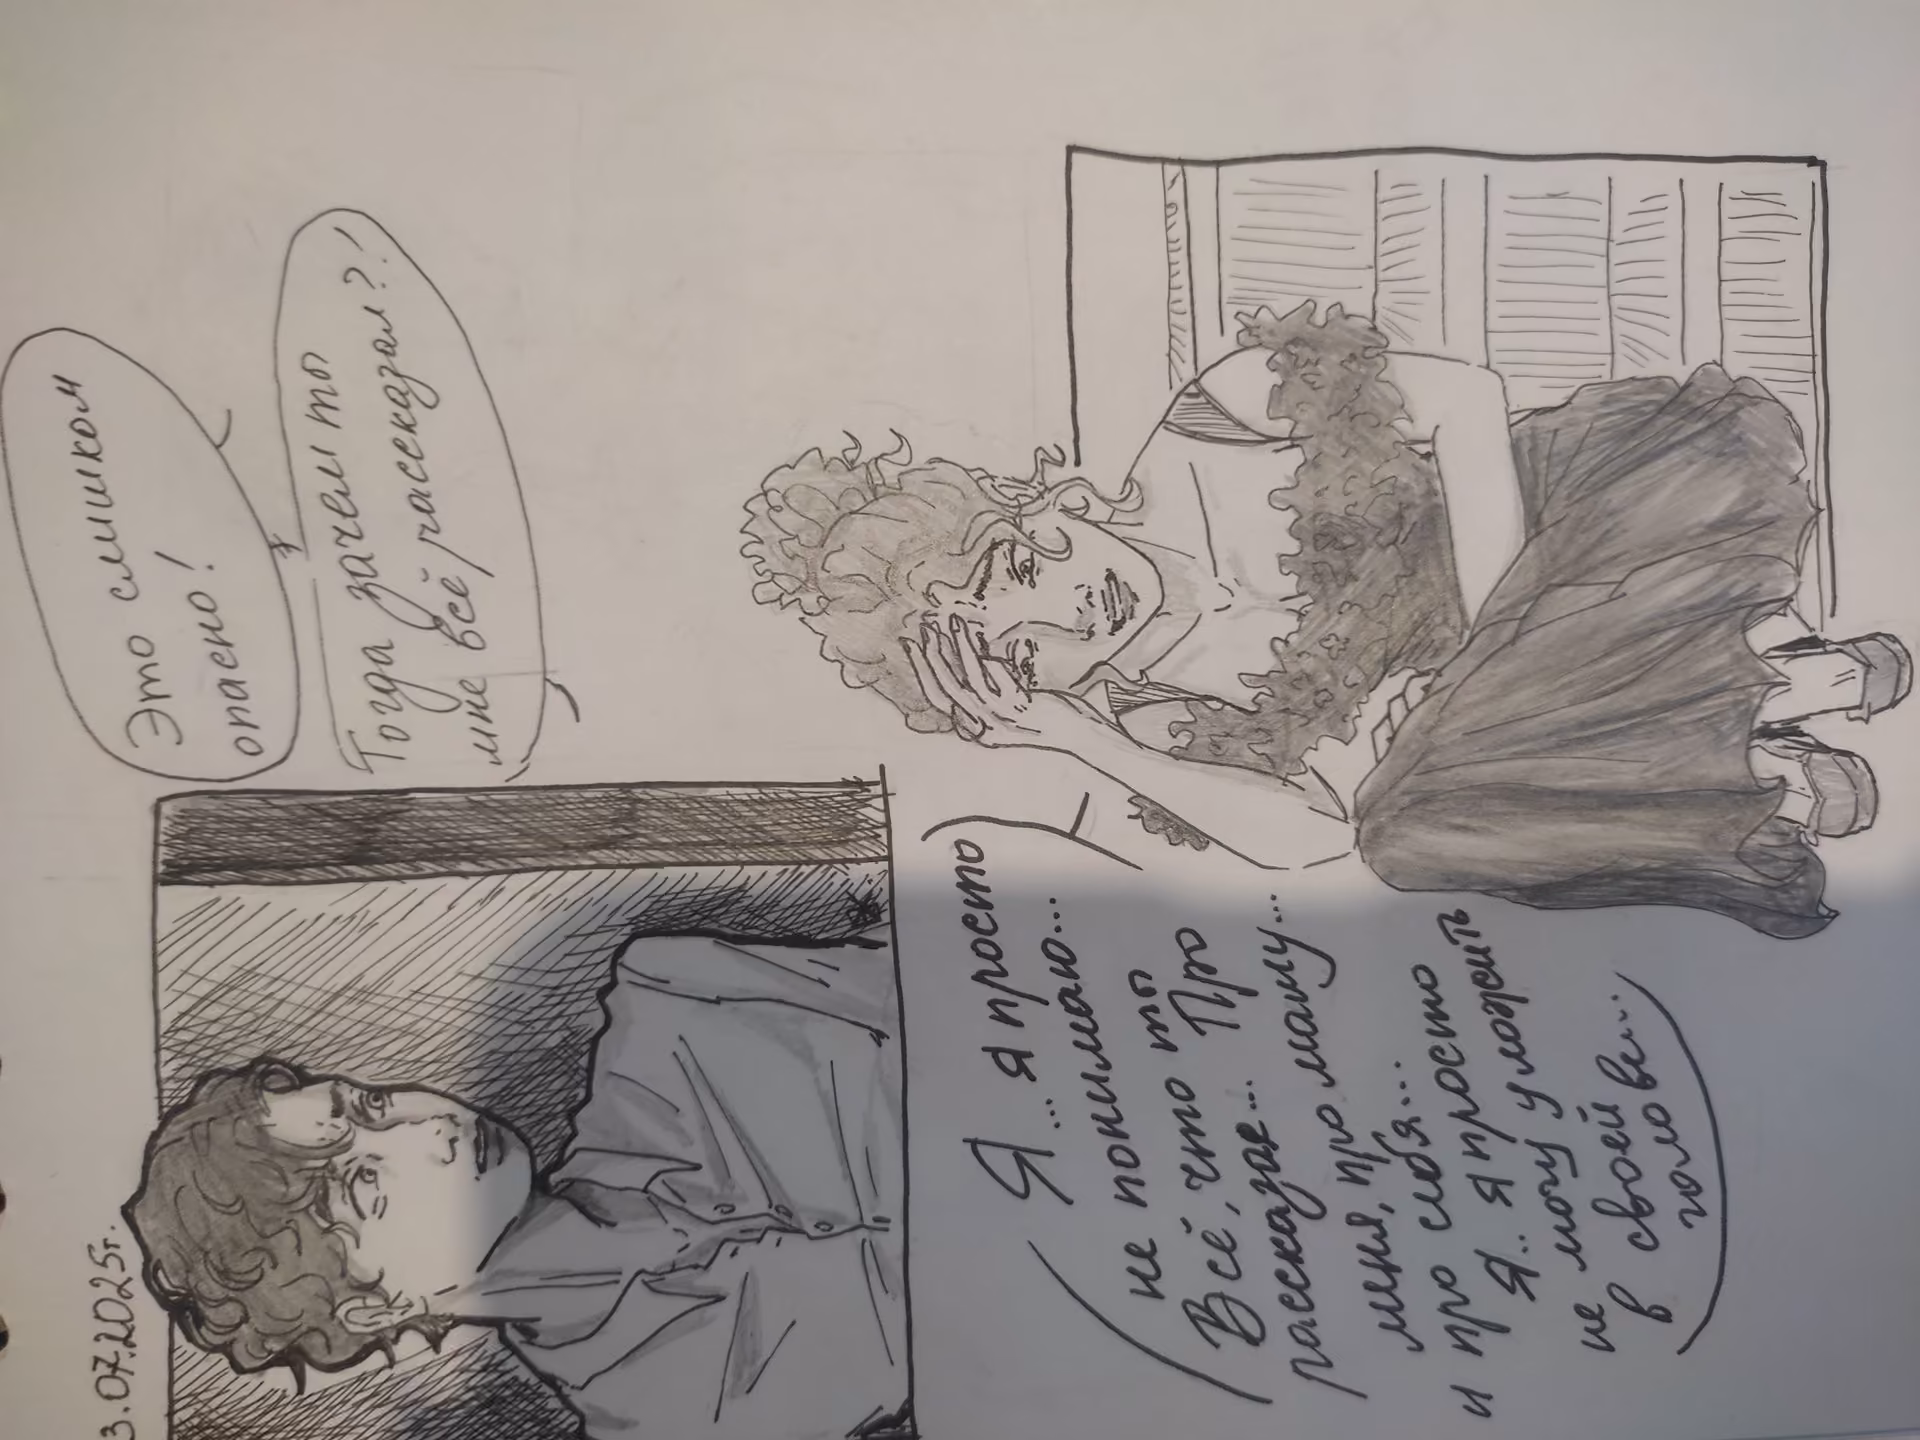 3.07.2025г.
Это слишком
опасно!
Тогда зачем ты
мне всё рассказал?!
Я... я просто
не понимаю...
Всё, что ты
рассказал... Про
меня, про маму...
и про себя...
Я.. я просто
не могу уложить
в своей
голове...